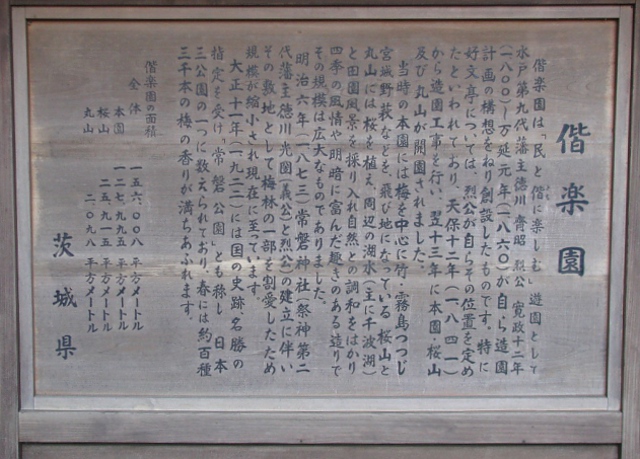 偕楽園
偕楽園は「民と偕に楽しむ」遊園として
水戸第九代藩主徳川斉昭(烈公 寛政十二年
(一八〇〇)~万延元年(一八六〇)が自ら造園
計画の構想をねり創設したものです。特に
好文亭については、烈公が自らその位置を定め
たといわれており、天保十二年(一八四一)
から造園工事を行い、翌十三年に本園・桜山
及び丸山が開園されました。
当時の本園には梅を中心に竹・霧島つつじ
宮城野萩などを、飛び地になっている桜山と
丸山には桜を植え、周辺の湖水(主に千波湖)
と田園風景を採り入れ自然との調和をはかり
四季の風情や明暗に富んだ趣きのある造りで
その規模は広大なものでありました。
明治六年(一八七三)常磐神社(祭神第二
代藩主徳川光圀(義公)と烈公)の建立に伴い
その敷地として梅林の一部を割愛したため
規模が縮小され現在に至っています。
大正十一年(一九二二)には国の史跡、名勝の
指定を受け「常磐公園」とも称し、日本
三公園の一つに数えられており、春には約百種
三千本の梅の香りが満ちあふれます。
偕楽園の面積
全体 一五六.〇〇八 平方メートル
本園 一二七.九九五 平方メートル
桜山 二五.九一五 平方メートル
丸山 二.〇九八 平方メートル
茨城県